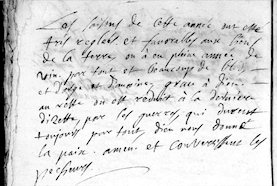 Les saisons de cette année ont esté
très reglées et favorables aux biens
de la terre, on a eu pleine année de
vin, par tout et beaucoup de bled
et d'orge et d'avoine, grace a dieu,
au reste on est reduit à la derniere
disette, par les guerres qui durent
toujours par tout, dieu nous donne
la paix. amen. et convertisse les
pecheurs